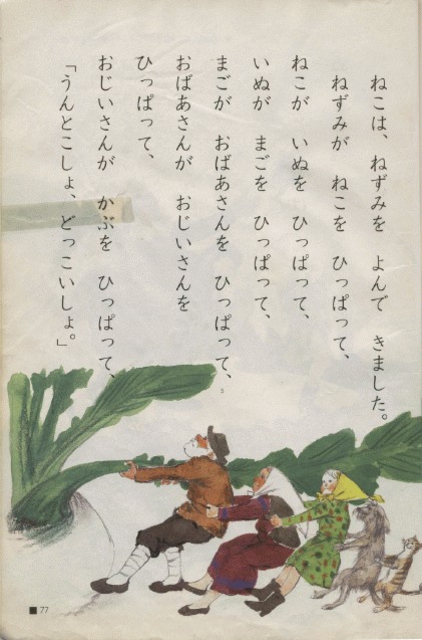 ねこは、ねずみを よんで きました。
ねずみが ねこを ひっぱって、
ねこが いぬを ひっぱって、
いぬが まごを ひっぱって、
まごが おばあさんを ひっぱって、
おばあさんが おじいさんを
ひっぱって、
おじいさんが かぶを ひっぱって、
「うんとこしょ、どっこいしょ。」
■77